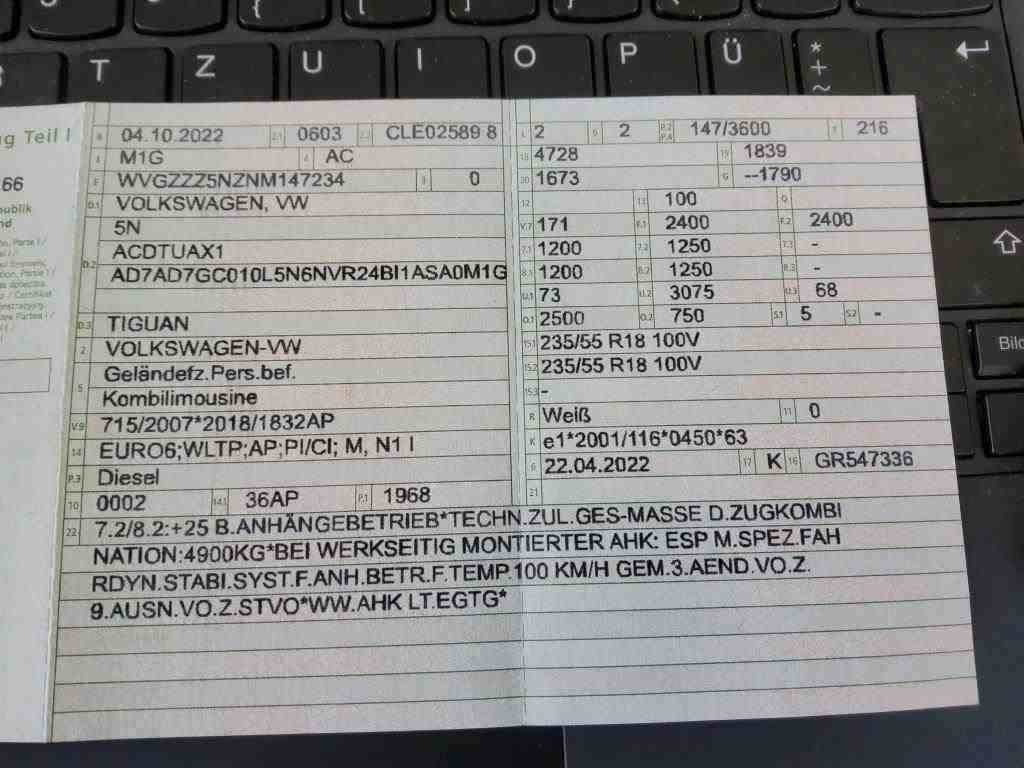 T Z U I O P Ü * + ~
g Teil I
66
publik
nd
B 04.10.2022 2.1 0603 2.2 CLE02589 8
J M1G 4 AC
E WVGZZZ5NZNM147234 3 0
D.1 VOLKSWAGEN, VW
5N
D.2 ACDTUAX1
AD7AD7GC010L5N6NVR24BI1ASA0M1G
D.3 TIGUAN
2 VOLKSWAGEN-VW
5 Geländefz.Pers.bef.
Kombilimousine
V.9 715/2007*2018/1832AP
14 EURO6;WLTP;AP;PI/CI; M, N1 I
P.3 Diesel
10 0002 14.1 36AP P.1 1968
L 2 9 2 P.2 P.4 147/3600 T 216
18 4728 19 1839
20 1673 G --1790
12 13 100 Q
V.7 171 F.1 2400 F.2 2400
7.1 1200 7.2 1250 7.3 -
8.1 1200 8.2 1250 8.3 -
U.1 73 U.2 3075 U.3 68
O.1 2500 O.2 750 S.1 5 S.2 -
15.1 235/55 R18 100V
15.2 235/55 R18 100V
15.3 -
R Weiß 11 0
K e1*2001/116*0450*63
6 22.04.2022 17 K 16 GR547336
21
22 7.2/8.2:+25 B.ANHÄNGEBETRIEB*TECHN.ZUL.GES-MASSE D.ZUGKOMBI
NATION:4900KG*BEI WERKSEITIG MONTIERTER AHK: ESP M.SPEZ.FAH
RDYN.STABI.SYST.F.ANH.BETR.F.TEMP.100 KM/H GEM.3.AEND.VO.Z.
9.AUSN.VO.Z.STVO*WW.AHK LT.EGTG*
Bild